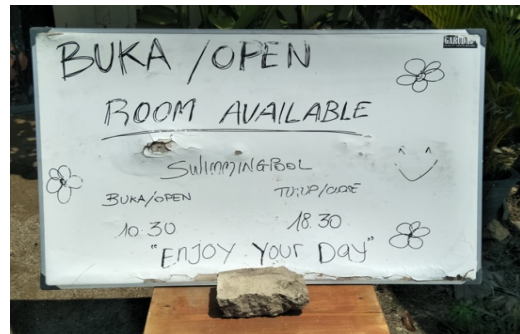 BUKA / OPEN
ROOM AVAILABLE
SWIMMINGPOOL
BUKA/OPEN
TUTUP/CLOSE
10.30
18.30
"ENJOY YOUR DAY"